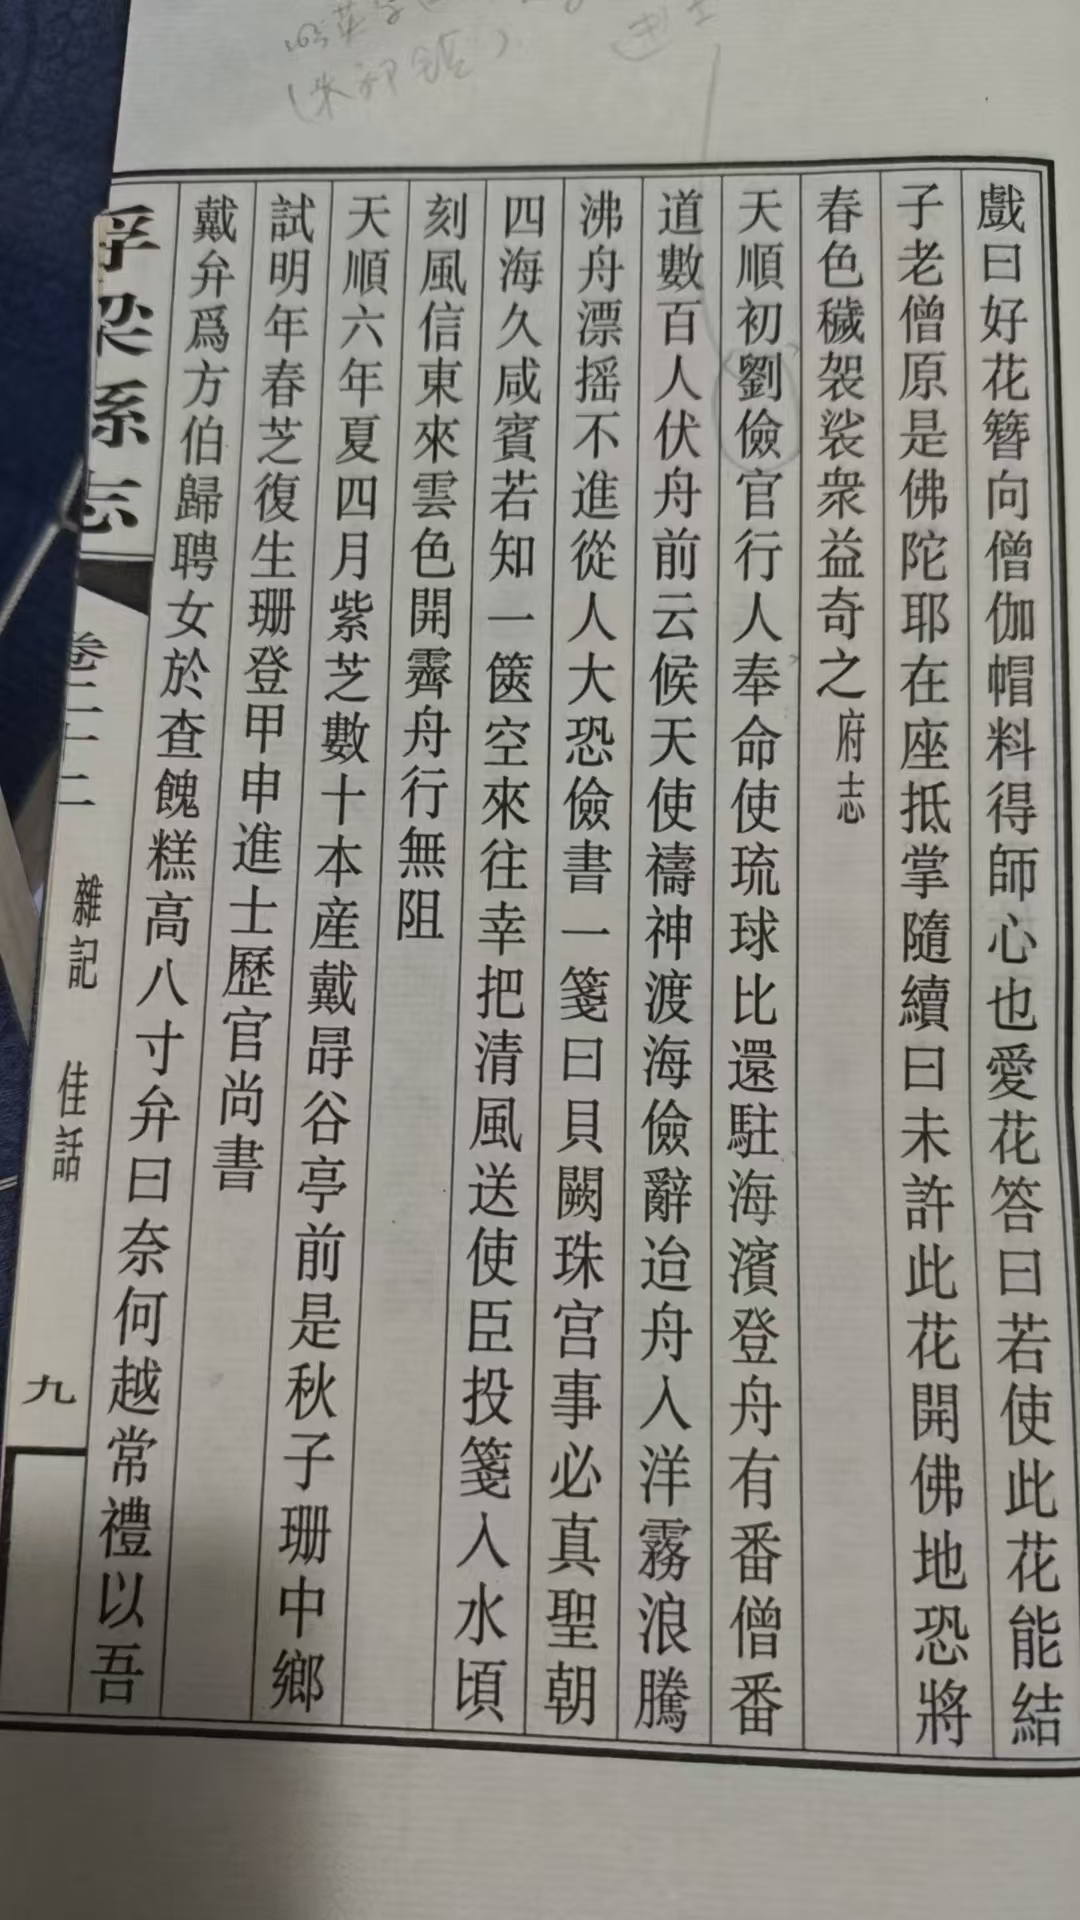 戲曰好花簪向僧伽帽料得師心也愛花答曰若使此花能結
子老僧原是佛陀耶在座抵掌隨續曰未許此花開佛地恐將
春色穢袈裟衆益奇之府志
天順初劉儉官行人奉命使琉球比還駐海濱登舟有番僧番
道數百人伏舟前云候天使禱神渡海儉辭迨舟入洋霧浪騰
沸舟漂摇不進從人大恐儉書一箋曰貝闕珠宫事必真聖朝
四海久咸賓若知一篋空來往幸把清風送使臣投箋入水頃
刻風信東來雲色開霽舟行無阻
天順六年夏四月紫芝數十本産戴㝵谷亭前是秋子珊中鄉
試明年春芝復生珊登甲申進士歷官尚書
戴弁爲方伯歸聘女於查餽糕高八寸弁曰奈何越常禮以吾
浮梁縣志
卷二十二
雜記
佳話
九